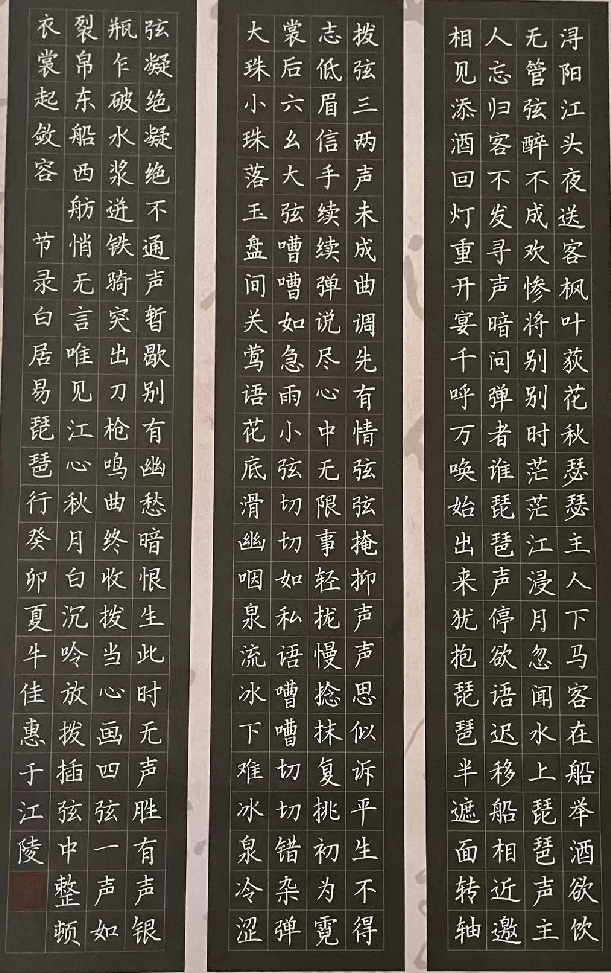 浔阳江头夜送客枫叶荻花秋瑟瑟主人下马客在船举酒欲饮
无管弦醉不成欢惨将别别时茫茫江浸月忽闻水上琵琶声主
人忘归客不发寻声暗问弹者谁琵琶声停欲语迟移船相近邀
相见添酒回灯重开宴千呼万唤始出来犹抱琵琶半遮面转轴
拨弦三两声未成曲调先有情弦弦掩抑声声思似诉平生不得
志低眉信手续续弹说尽心中无限事轻拢慢捻抹复挑初为霓
裳后六幺大弦嘈嘈如急雨小弦切切如私语嘈嘈切切错杂弹
大珠小珠落玉盘间关莺语花底滑幽咽泉流冰下难冰泉冷涩
弦凝绝凝绝不通声暂歇别有幽愁暗恨生此时无声胜有声银
瓶乍破水浆迸铁骑突出刀枪鸣曲终收拨当心画四弦一声如
裂帛东船西舫悄无言唯见江心秋月白沉吟放拨插弦中整顿
衣裳起敛容 节录白居易琵琶行癸卯夏牛佳惠于江陵